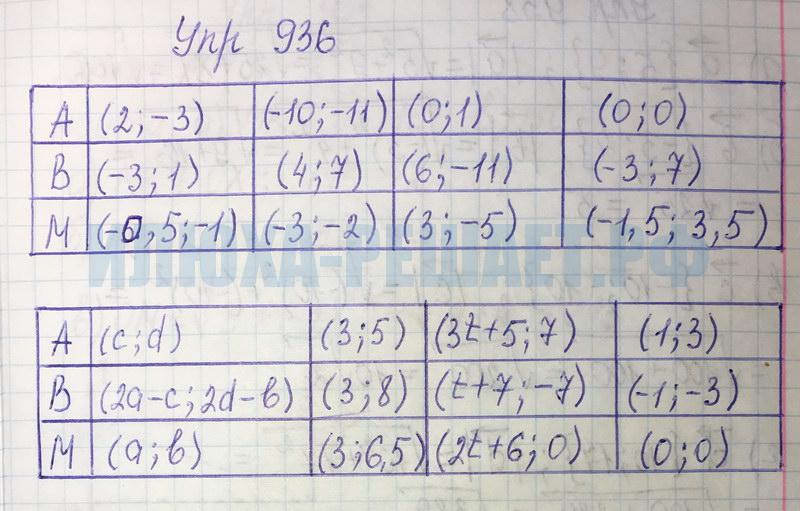 Упр 936
А (2; -3) (-10; -11) (0; 1) (0; 0)
В (-3; 1) (4; 7) (6; -11) (-3; 7)
М (-0,5; -1) (-3; -2) (3; -5) (-1,5; 3,5)
ИЛЮХА-РЕШАЕТ.РФ
А (c; d) (3; 5) (3t+5; 7) (1; 3)
В (2a-c; 2d-b) (3; 8) (t+7; -7) (-1; -3)
М (a; b) (3; 6,5) (2t+6; 0) (0; 0)